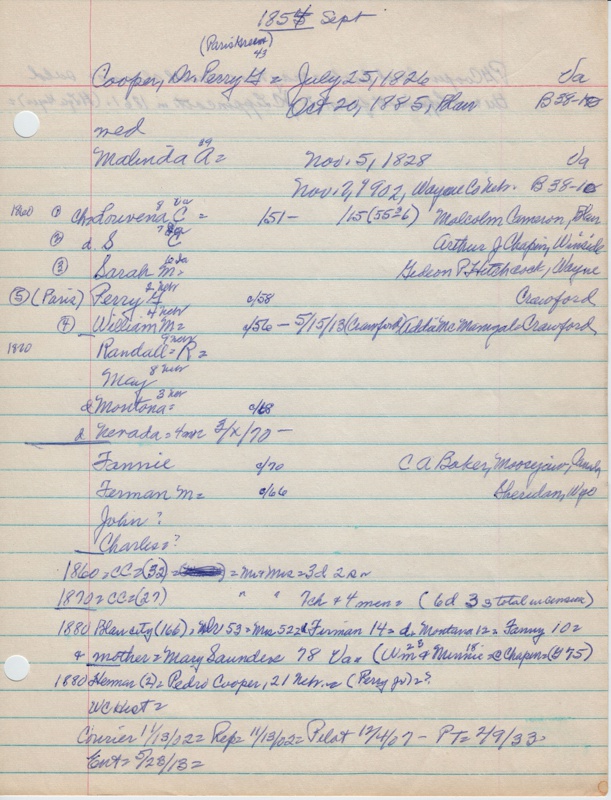 1854 Sept
(Paris Green)
43
Cooper, Dr. Perry G = July 25, 1826 Va
Oct 20, 1885, Blair B 38-1
med 39
Malinda A = Nov. 5, 1828 Va
Nov. 17, 1902, Wayne Co Nebr. B 38-1
8 Va
1860 ① Louvena C = 151 - Malcolm Cameron, Blair
② d S C Arthur J Chapin, Winside
③ Sarah M = Gideon P Hitchcock, Wayne
2 nebr
⑤ (Paris) Perry G c/58 Crawford
4 nebr
④ William M = c/56 - 5/15/13 (Crawford) Crawford
9 nebr
1870 Randall = R =
8 nebr
May
3 nebr
d Montona = c/68
d Nevada = 4 mo 3/x/70 -
Fannie c/70 C A Baker, Moosejaw,
Ferman M = c/66 Sheridan, Wyo
John ?
Charles = ?
1860 = CC = (32) = = Mr & Mrs = 3d 2s
1870 = CC = (27) " " 7ch & 4 men = (6d 3s total in census)
1880 Blair city (166), 53 = Mrs 52 Ferman 14 = d. Montana 12 = Fanny 10 =
& mother = Mary Saunders 78 Va = (Wm 25 & Minnie 18 = C Chapin = (#75)
1880 Herman (2) = Pedro Cooper, 21 Nebr. = (Perry Jr) = ?
WC Hist =
Courier 11/13/02 = Rep = 11/13/02 = Pilot 12/4/07 - PT = 2/9/33 =
Ent = 5/28/13 =